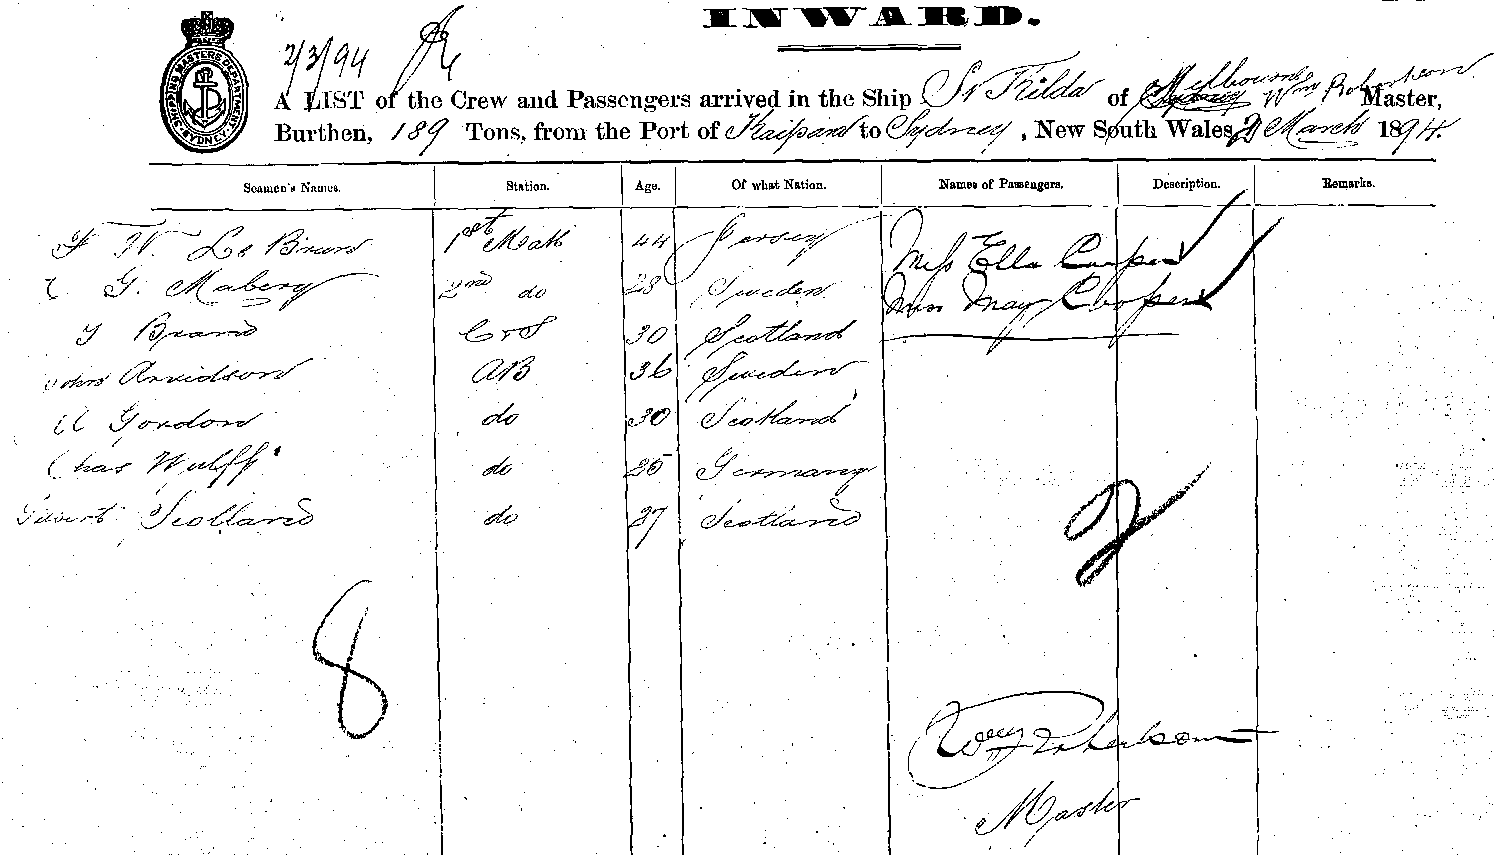 INWARD.
2/3/94
SHIPPING MASTERS DEPARTMENT SYDNEY
A LIST of the Crew and Passengers arrived in the Ship St Kilda of Melbourne Wm Robertson Master,
Burthen, 189 Tons, from the Port of Kaipara to Sydney, New South Wales, 2 March 1894.
Seamen's Names. Station. Age. Of what Nation. Names of Passengers. Description. Remarks.
F W. Le Brun 1st Mate 44 Jersey Miss Ella Cooper
G. Maberg 2nd do 28 Sweden Miss May Cooper
J Brand C & S 30 Scotland
Johns Arvidson AB 36 Sweden
A Gordon do 30 Scotland
Chas Wulff do 25 Germany
Scolland do 27 Scotland
2
8
Wm Robertson
Master